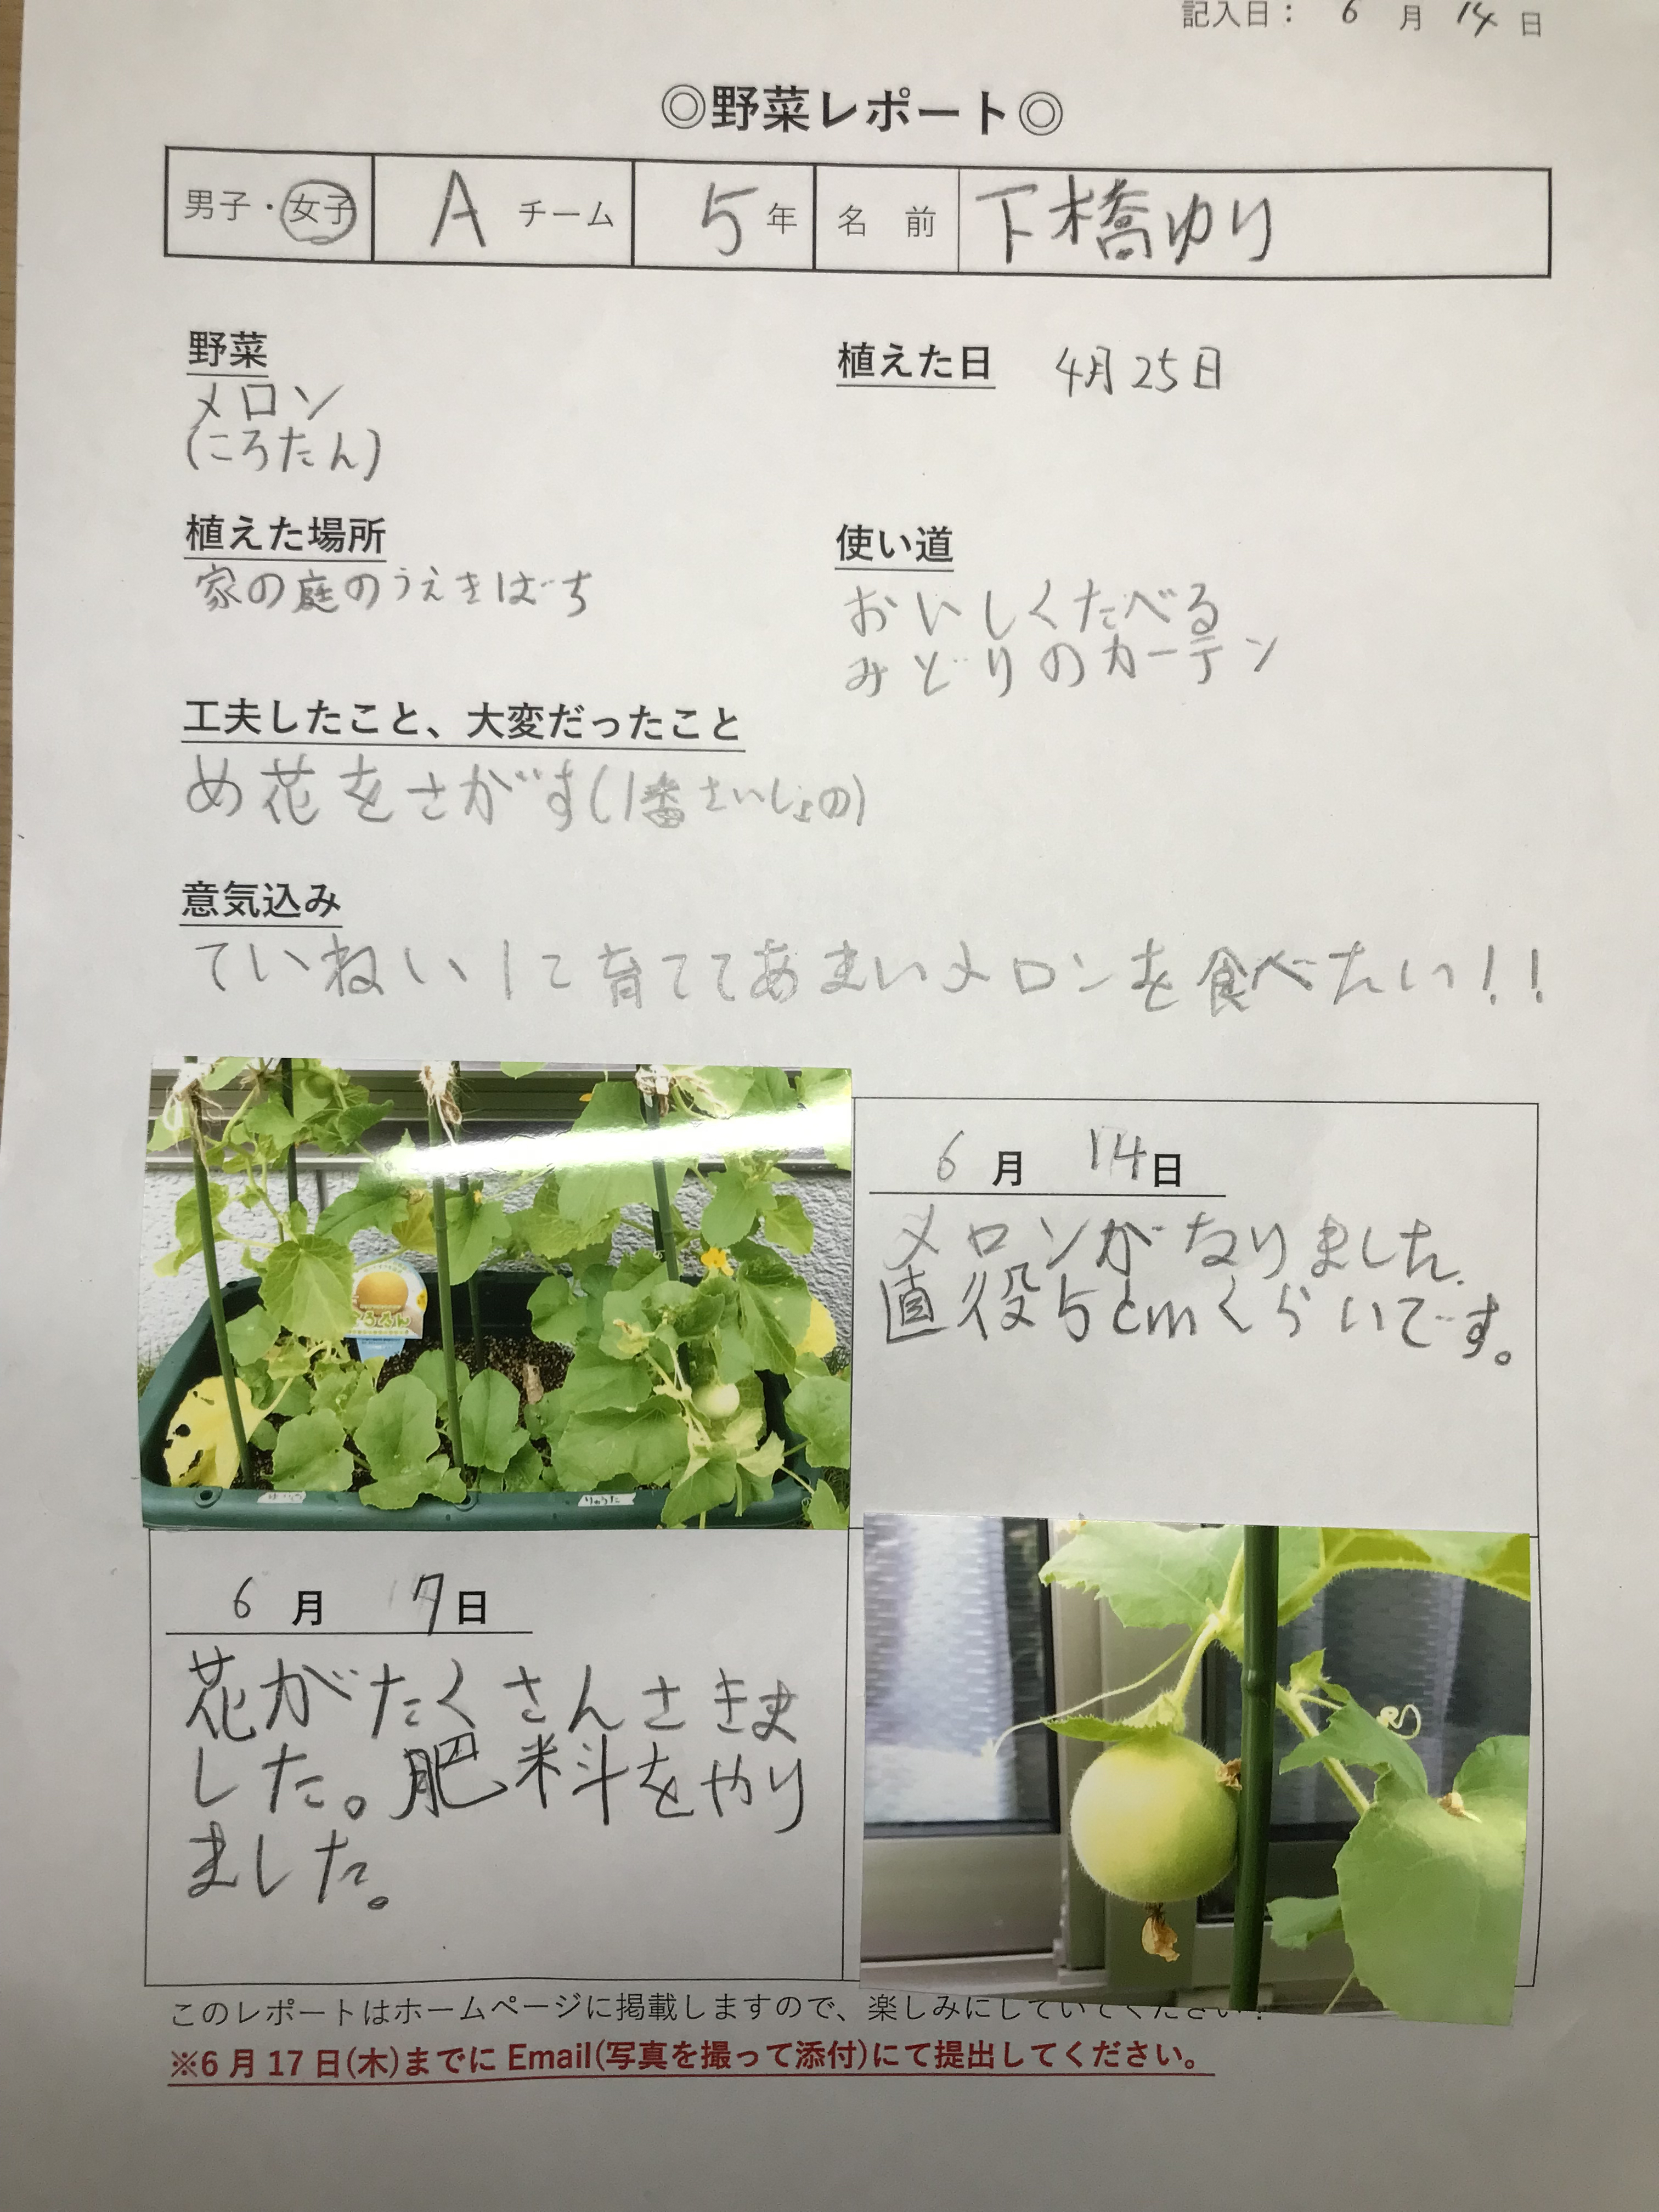 記入日： 6 月 14 日
◎野菜レポート◎
男子・女子 A チーム 5 年 名 前 下橋ゆり
野菜
メロン
(ころたん)
植えた日 4月25日
植えた場所
家の庭のうえきばち
使い道
おいしくたべる
みどりのカーテン
工夫したこと、大変だったこと
め花をさがす(1番さいしょの)
意気込み
ていねいに育ててあまいメロンを食べたい!!
ころたん
りゅうた
6 月 14日
メロンがなりました.
直役5cmくらいです。
6 月 7日
花がたくさんさきま
した。肥料をやり
ました。
このレポートはホームページに掲載しますので、楽しみにしていてください！
※6 月 17 日(木)までに Email(写真を撮って添付)にて提出してください。